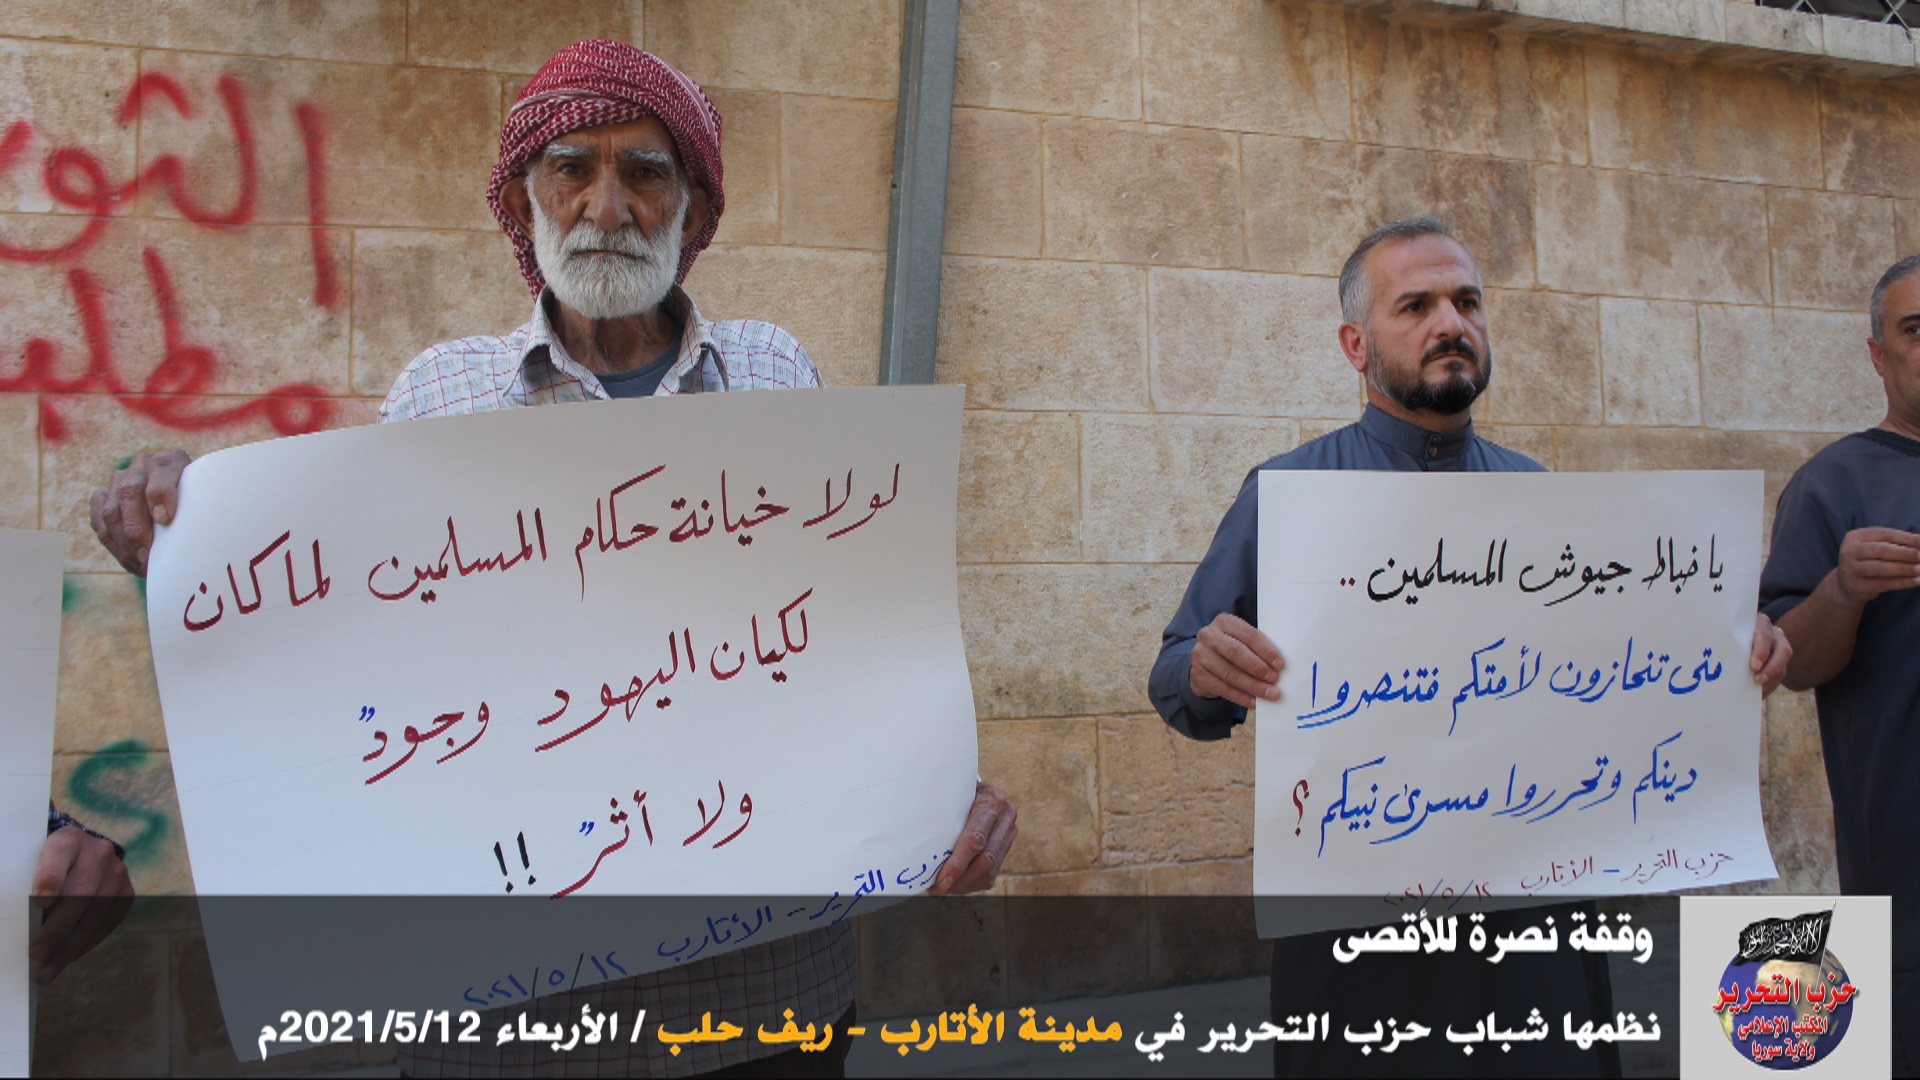 لولا خيانة حكام المسلمين لما كان
لكيان اليهود وجودٌ
ولا أثرٌ !!
حزب التحرير - الأتارب ٢٠٢١/٥/١٢
يا ضباط جيوش المسلمين ..
متى تنحازون لأمتكم فتنصروا
دينكم وتحرروا مسرى نبيكم ؟
حزب التحرير - الأتارب ٢٠٢١/٥/١٢
وقفة نصرة للأقصى
نظمها شباب حزب التحرير في مدينة الأتارب - ريف حلب / الأربعاء 2021/5/12م
حزب التحرير
المكتب الإعلامي
ولاية سوريا